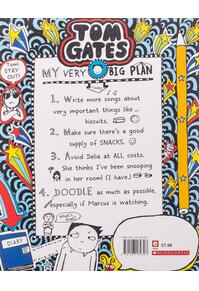 TOM
GATES
Tom!
STAY
OUT!
MY VERY BIG PLAN
1. Write more songs about
very important things like ...
biscuits.
2. Make sure there's a good
supply of SNACKS.
3. Avoid Delia at ALL costs.
She thinks I've been snooping
in her room! (I have.)
4. DOODLE as much as possible,
especially if Marcus is watching.
DIARY
£7.99
SCHOLASTIC